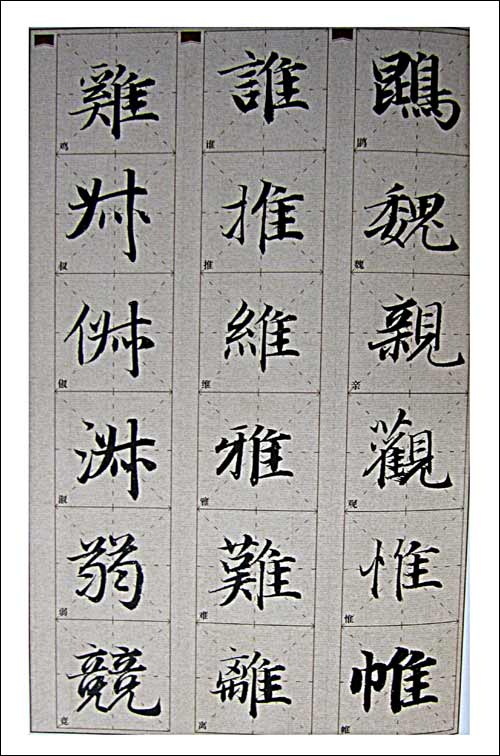 鵾
魏 魏
親 亲
觀 观
惟 惟
帷 帷
誰 谁
推 推
維 维
雅 雅
難 难
離 离
雞 鸡
叔 叔
俶 俶
淑 淑
弱 弱
競 竞